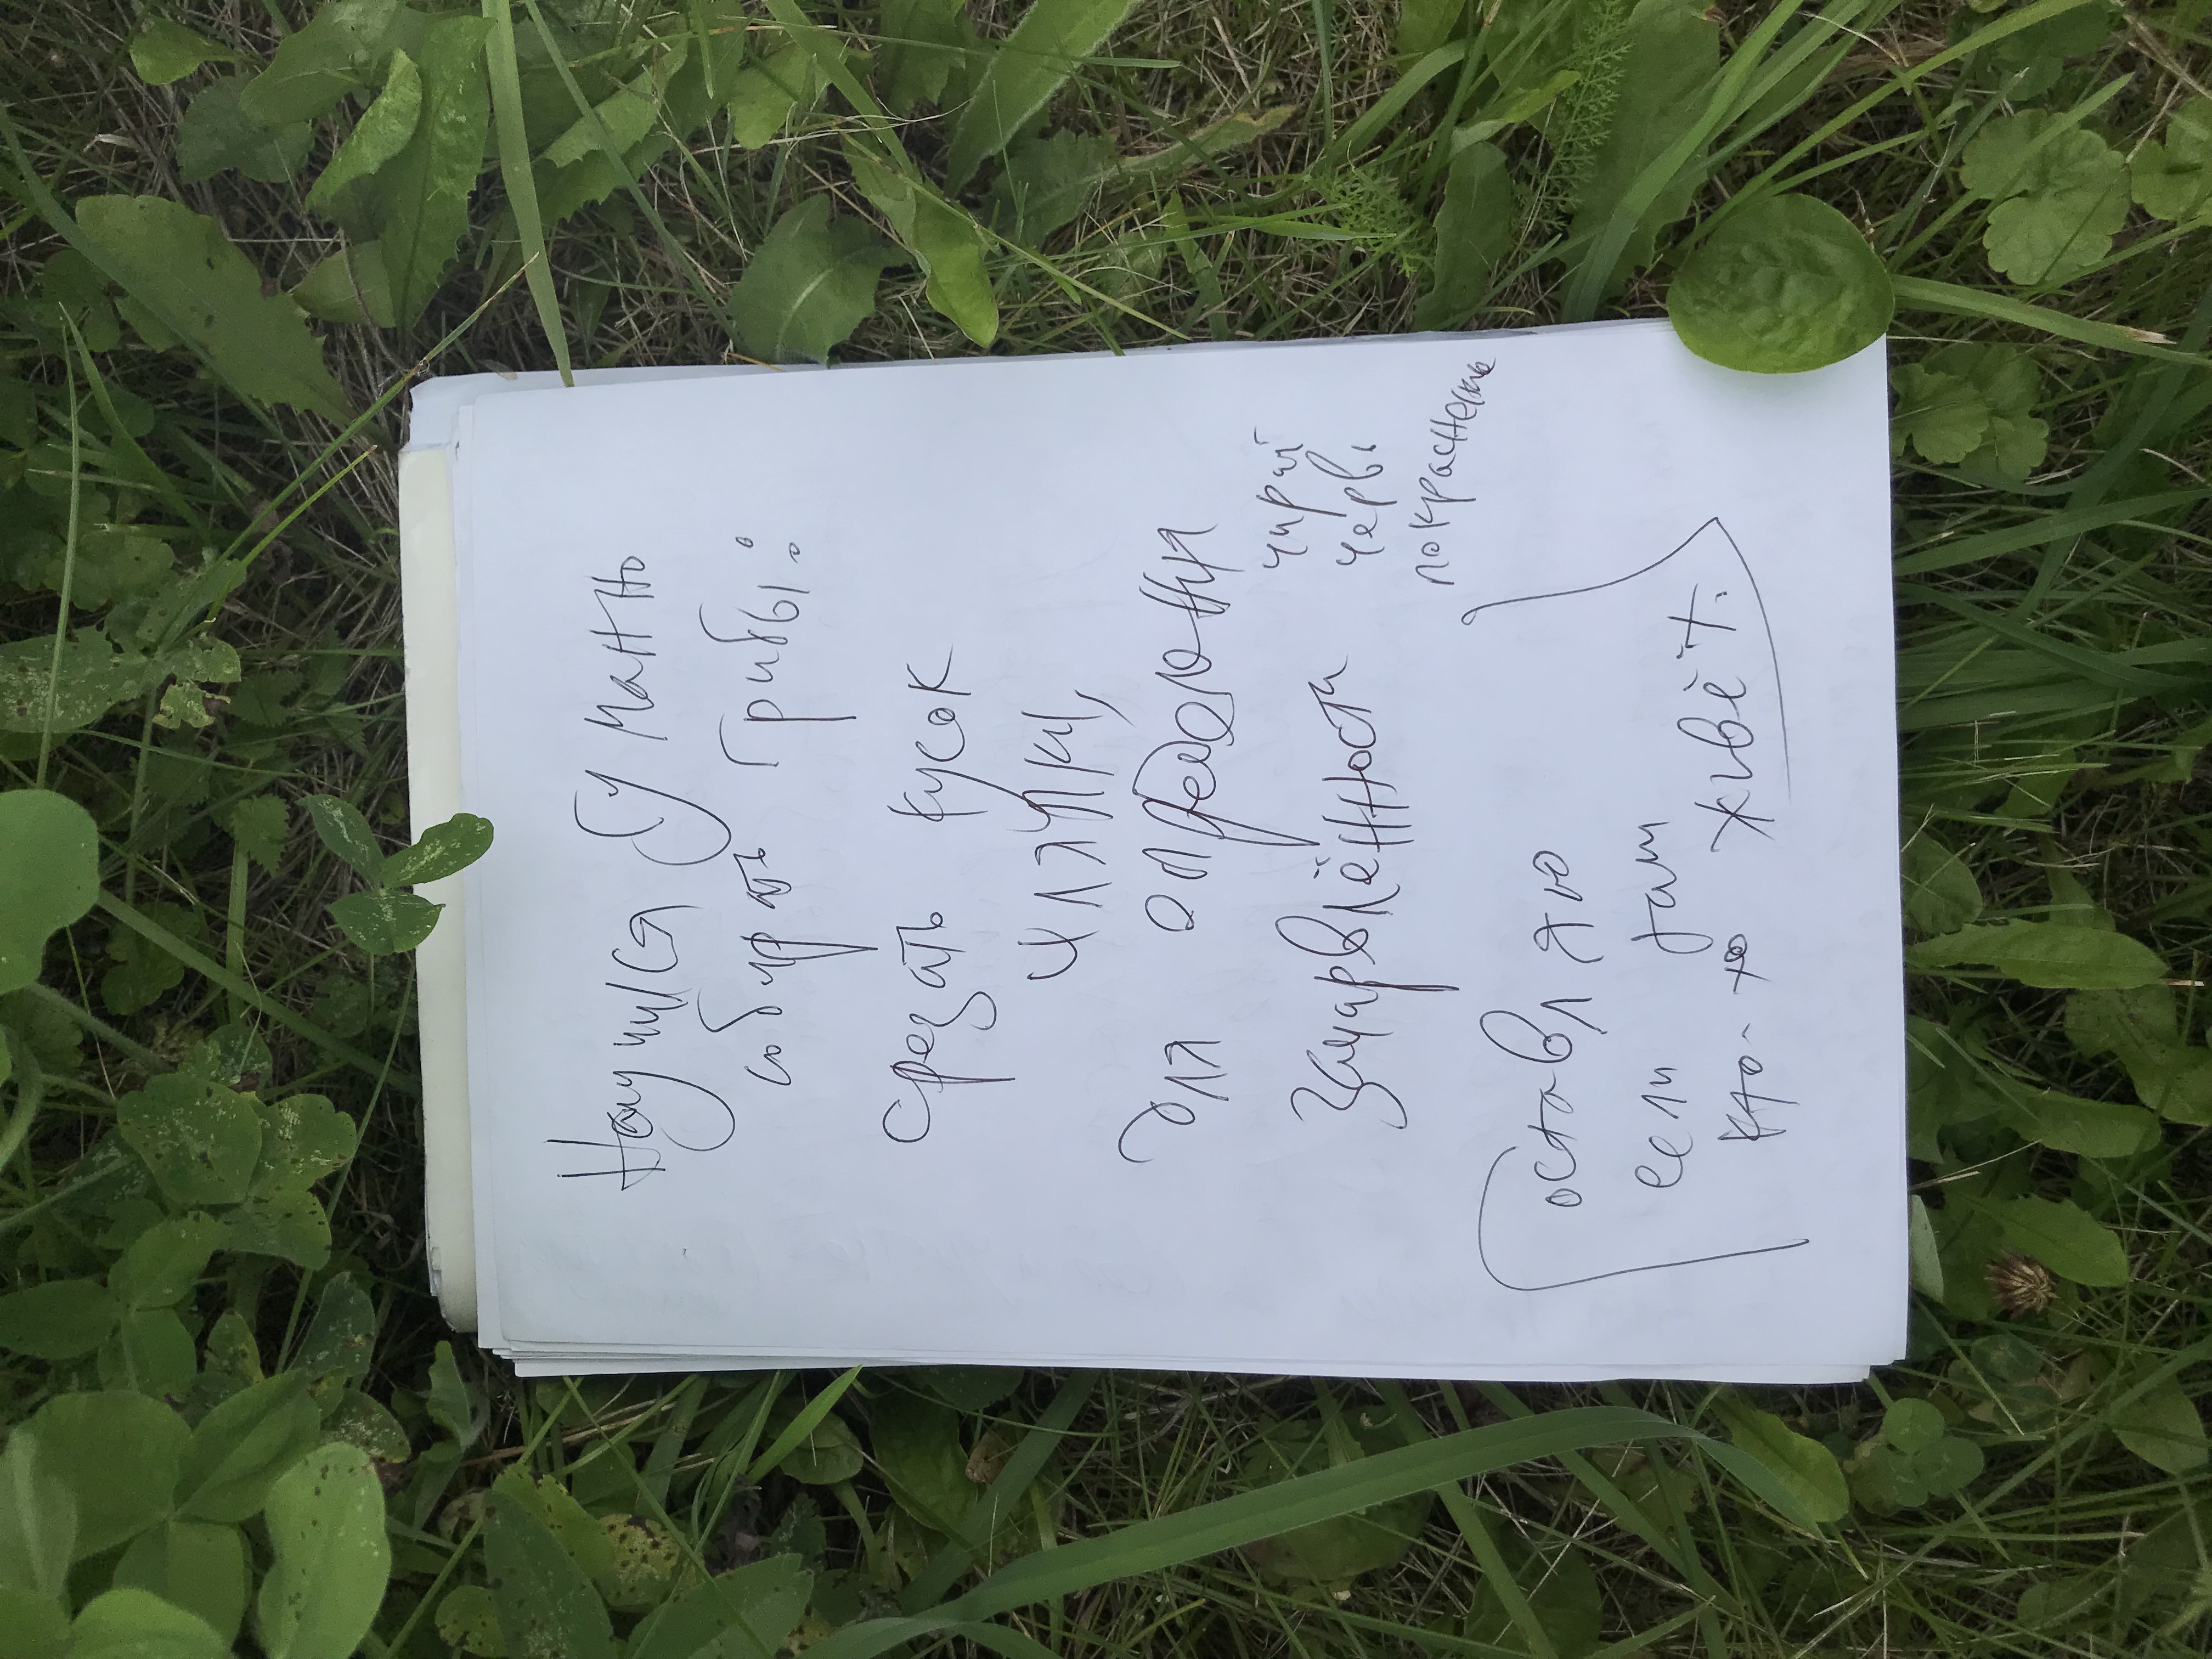 Научился гуманно
собирать грибы:
срезать кусок
шляпки,
для определения
зачарвлённости
чирей
червь
покраснение
оставляю
если там
кто-то живёт.